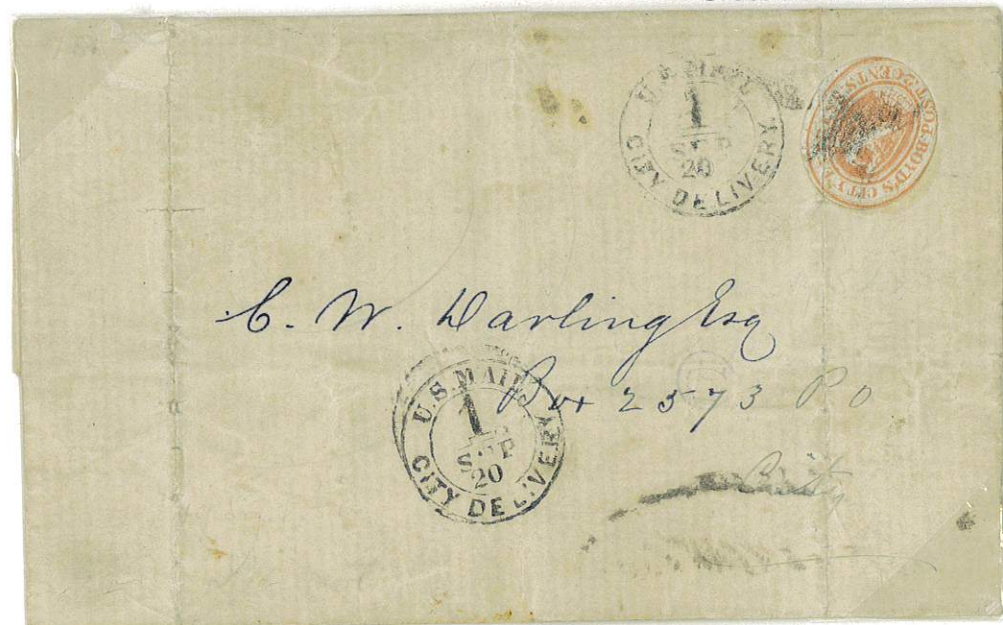 U.S. MAIL
1
SEP
20
CITY DELIVERY
BOYD'S CITY POST. 2 CENTS
C. W. Darling Esq
Box 2573 P O
City
U.S. MAIL
1
SEP
20
CITY DELIVERY